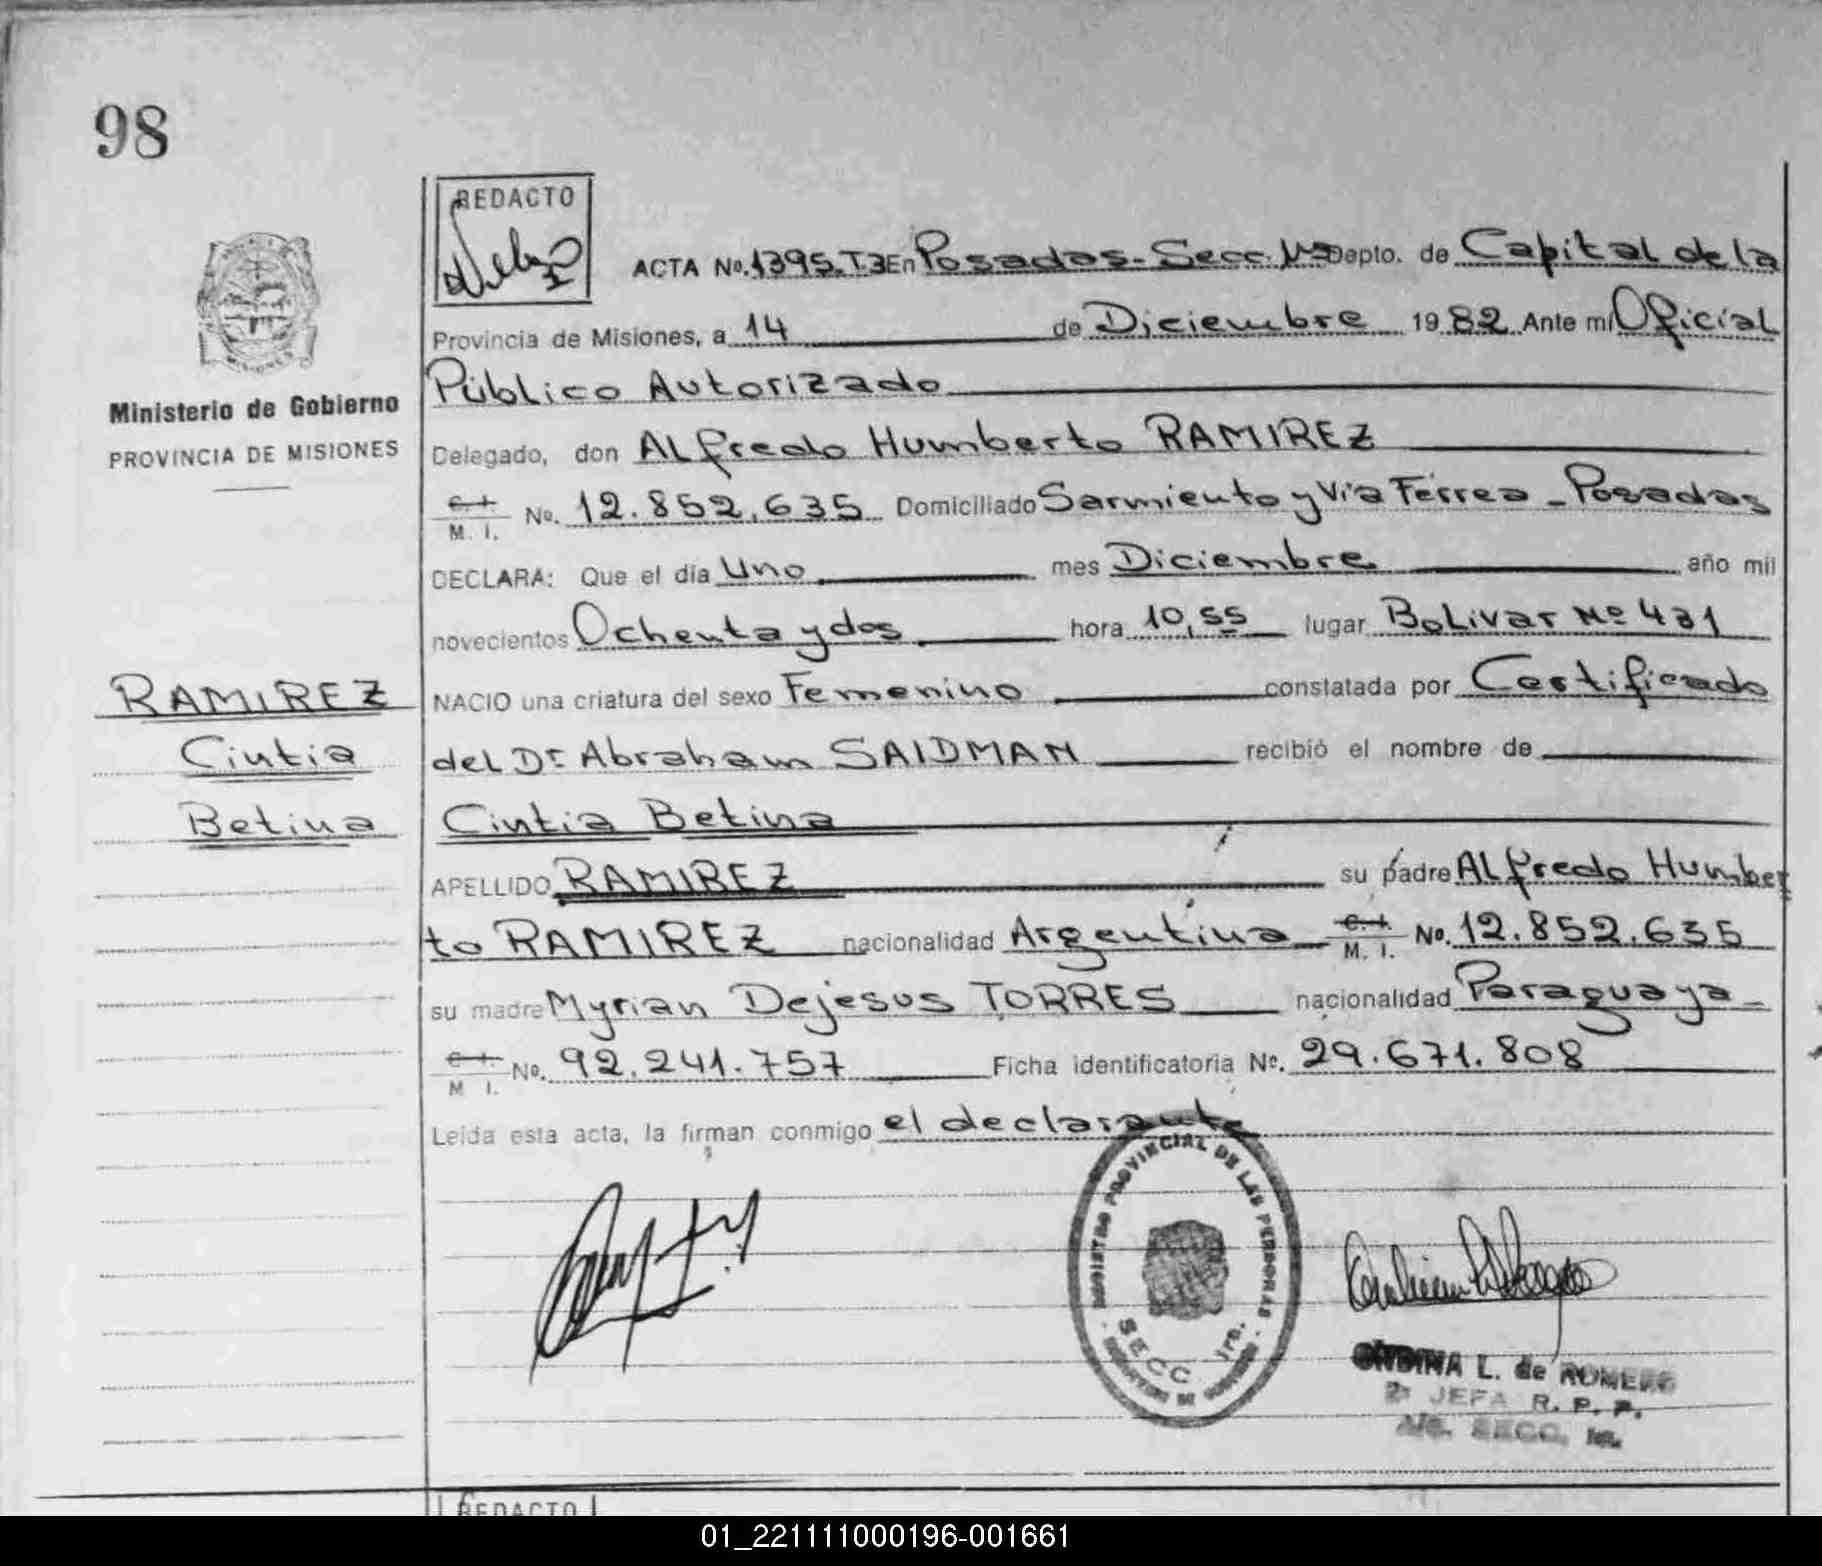 98
REDACTO
ACTA No. 1395. T.3 En Posadas - Secc. 1ª Depto. de Capital de la
Provincia de Misiones, a 14 de Diciembre 1982 Ante mí Oficial
Público Autorizado
Ministerio de Gobierno
PROVINCIA DE MISIONES
Delegado, don ALfredo Humberto RAMIREZ
C. I.
M. I. No. 12.852.635 Domiciliado Sarmiento y Vía Ferrea - Posadas
DECLARA: Que el día Uno mes Diciembre año mil
novecientos Ochenta y dos hora 10,55 lugar BoLivar Nº 431
RAMIREZ
Cintia
Betina
NACIO una criatura del sexo Femenino constatada por Certificado
deL Dr. Abraham SAIDMAN recibió el nombre de
Cintia Betina
APELLIDO RAMIREZ su padre ALfredo Humber
to RAMIREZ nacionalidad Argentina C. I.
M. I. No. 12.852.635
su madre Myrian Dejesus TORRES nacionalidad Paraguaya
C. I.
M. I. No. 92.241.757 Ficha identificatoria No. 29.671.808
Leída esta acta, la firman conmigo el declarante
REGISTRO PROVINCIAL DE LAS PERSONAS
SECC 1ra.
ONDINA L. de ROMERO
2ª JEFA R. P. P.
A/C. SECC. 1a.
REDACTO
01_221111000196-001661